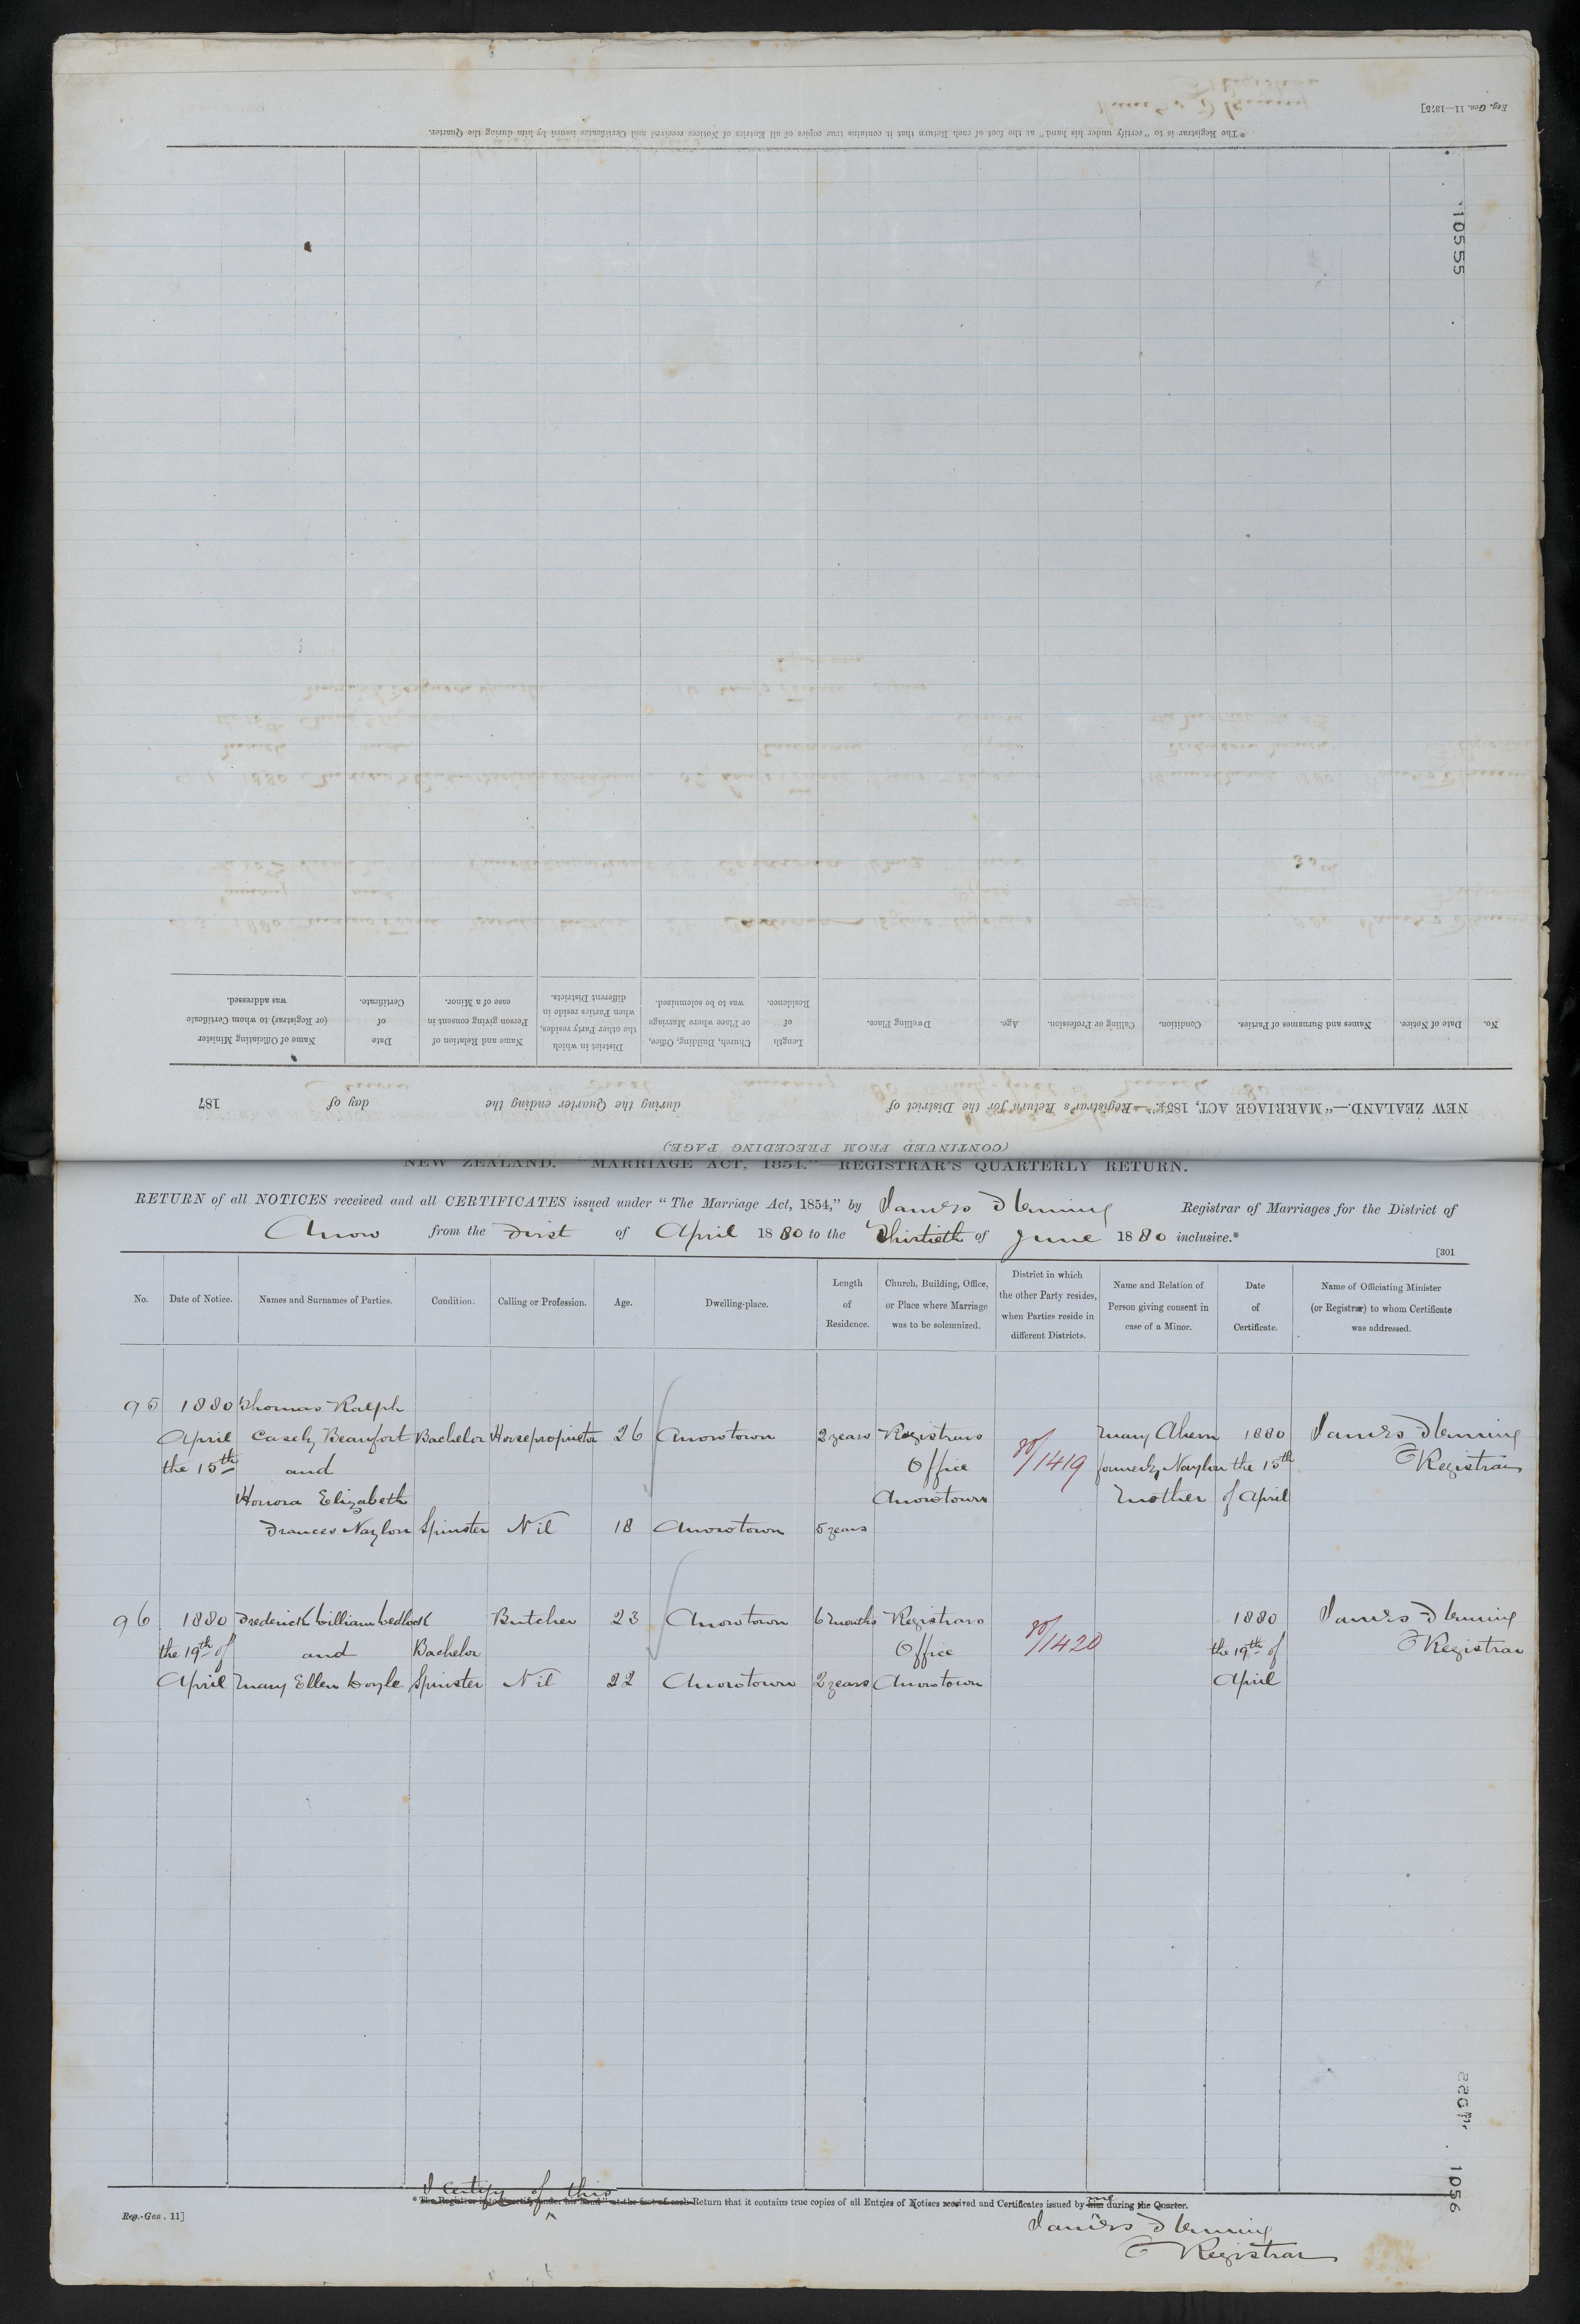 Reg. Gen. 11—1875]
* The Registrar is to "certify under his hand" at the foot of each Return that it contains true copies of all Entries of Notices received and Certificates issued by him during the Quarter.
10555
No.
Date of Notice.
Names and Surnames of Parties.
Condition.
Calling or Profession.
Age.
Dwelling Place.
Length of Residence.
Church, Building, Office, or Place where Marriage was to be solemnized.
District in which the other Party resides, when Parties reside in different Districts.
Name and Relation of Person giving consent in case of a Minor.
Date of Certificate.
Name of Officiating Minister (or Registrar) to whom Certificate was addressed.
NEW ZEALAND.—"MARRIAGE ACT, 1854."—Registrar's Return for the District of during the Quarter ending the day of 187
(CONTINUED FROM PRECEDING PAGE.)
NEW ZEALAND. "MARRIAGE ACT, 1854." REGISTRAR'S QUARTERLY RETURN.
RETURN of all NOTICES received and all CERTIFICATES issued under "The Marriage Act, 1854," by James Fleming Registrar of Marriages for the District of
Arrow from the First of April 1880 to the Thirtieth of June 1880 inclusive.*
[301
No.
Date of Notice.
Names and Surnames of Parties.
Condition.
Calling or Profession.
Age.
Dwelling-place.
Length of Residence.
Church, Building, Office, or Place where Marriage was to be solemnized.
District in which the other Party resides, when Parties reside in different Districts.
Name and Relation of Person giving consent in case of a Minor.
Date of Certificate.
Name of Officiating Minister (or Registrar) to whom Certificate was addressed.
95 1880 Thomas Ralph
April Casely Beaufort Bachelor Horseproprietor 26 Arrowtown 2 years Registrars 80/1419 Mary Ahern 1880 James Fleming
the 15th and Office formerly Naylon the 15th Registrar
Honora Elizabeth Arrowtown Mother of April
Frances Naylon Spinster Nil 18 Arrowtown 5 years
96 1880 Frederick William Cedlock Butcher 23 Arrowtown 6 months Registrars 80/1420 1880 James Fleming
the 19th of and Bachelor Office the 19th of Registrar
April Mary Ellen Doyle Spinster Nil 22 Arrowtown 2 years Arrowtown April
1056
I certify of this
* The Registrar is to "certify under his hand" at the foot of each Return that it contains true copies of all Entries of Notices received and Certificates issued by him me during the Quarter.
Reg.-Gen. 11]
James Fleming
Registrar